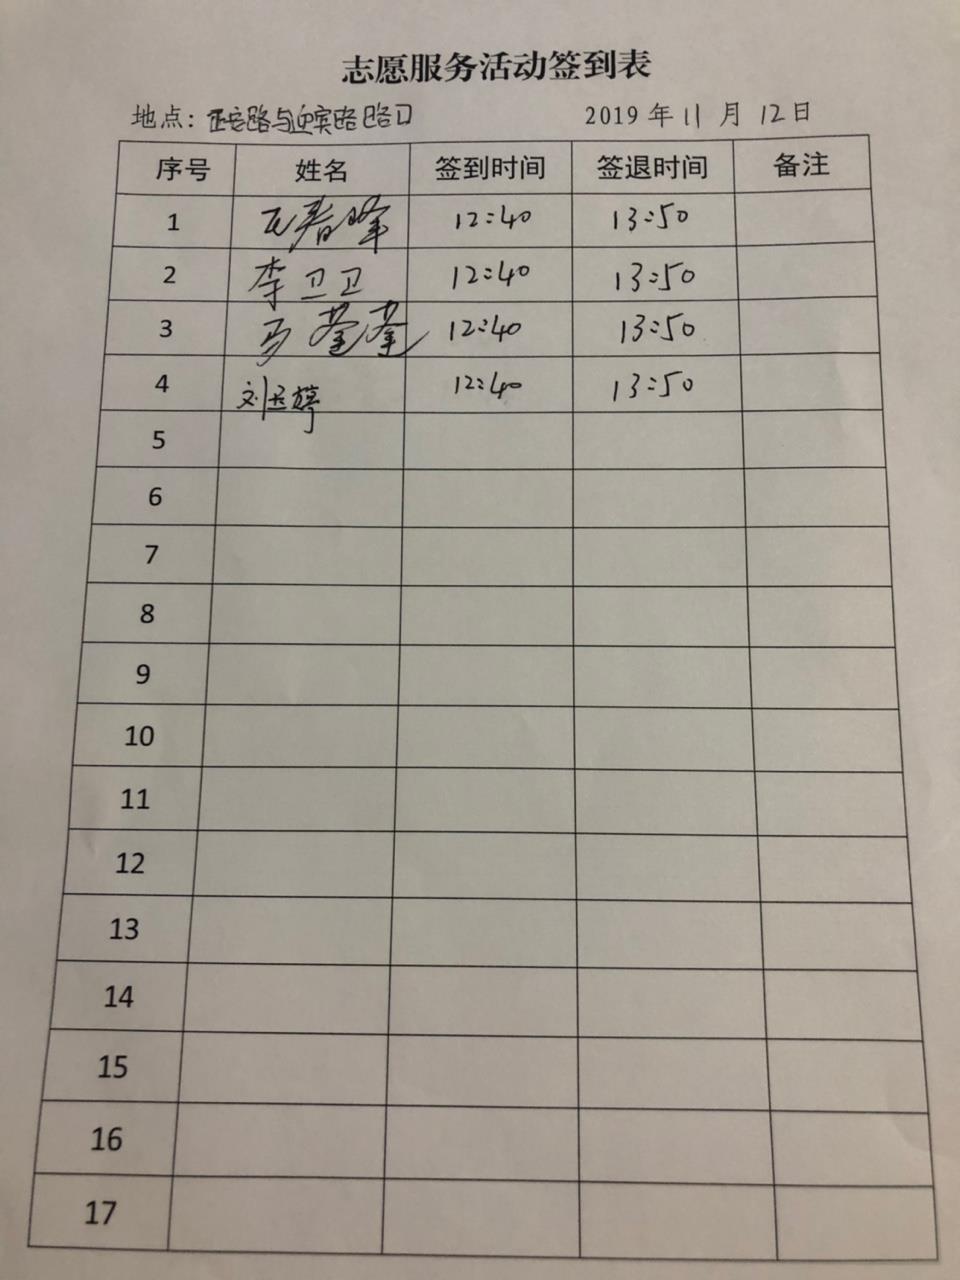 志愿服务活动签到表
地点：正安路与迎宾路路口 2019 年 11 月 12 日
序号 姓名 签到时间 签退时间 备注
1 春峰 12:40 13:50
2 李卫卫 12:40 13:50
3 马 12:40 13:50
4 刘婷 12:40 13:50
5
6
7
8
9
10
11
12
13
14
15
16
17